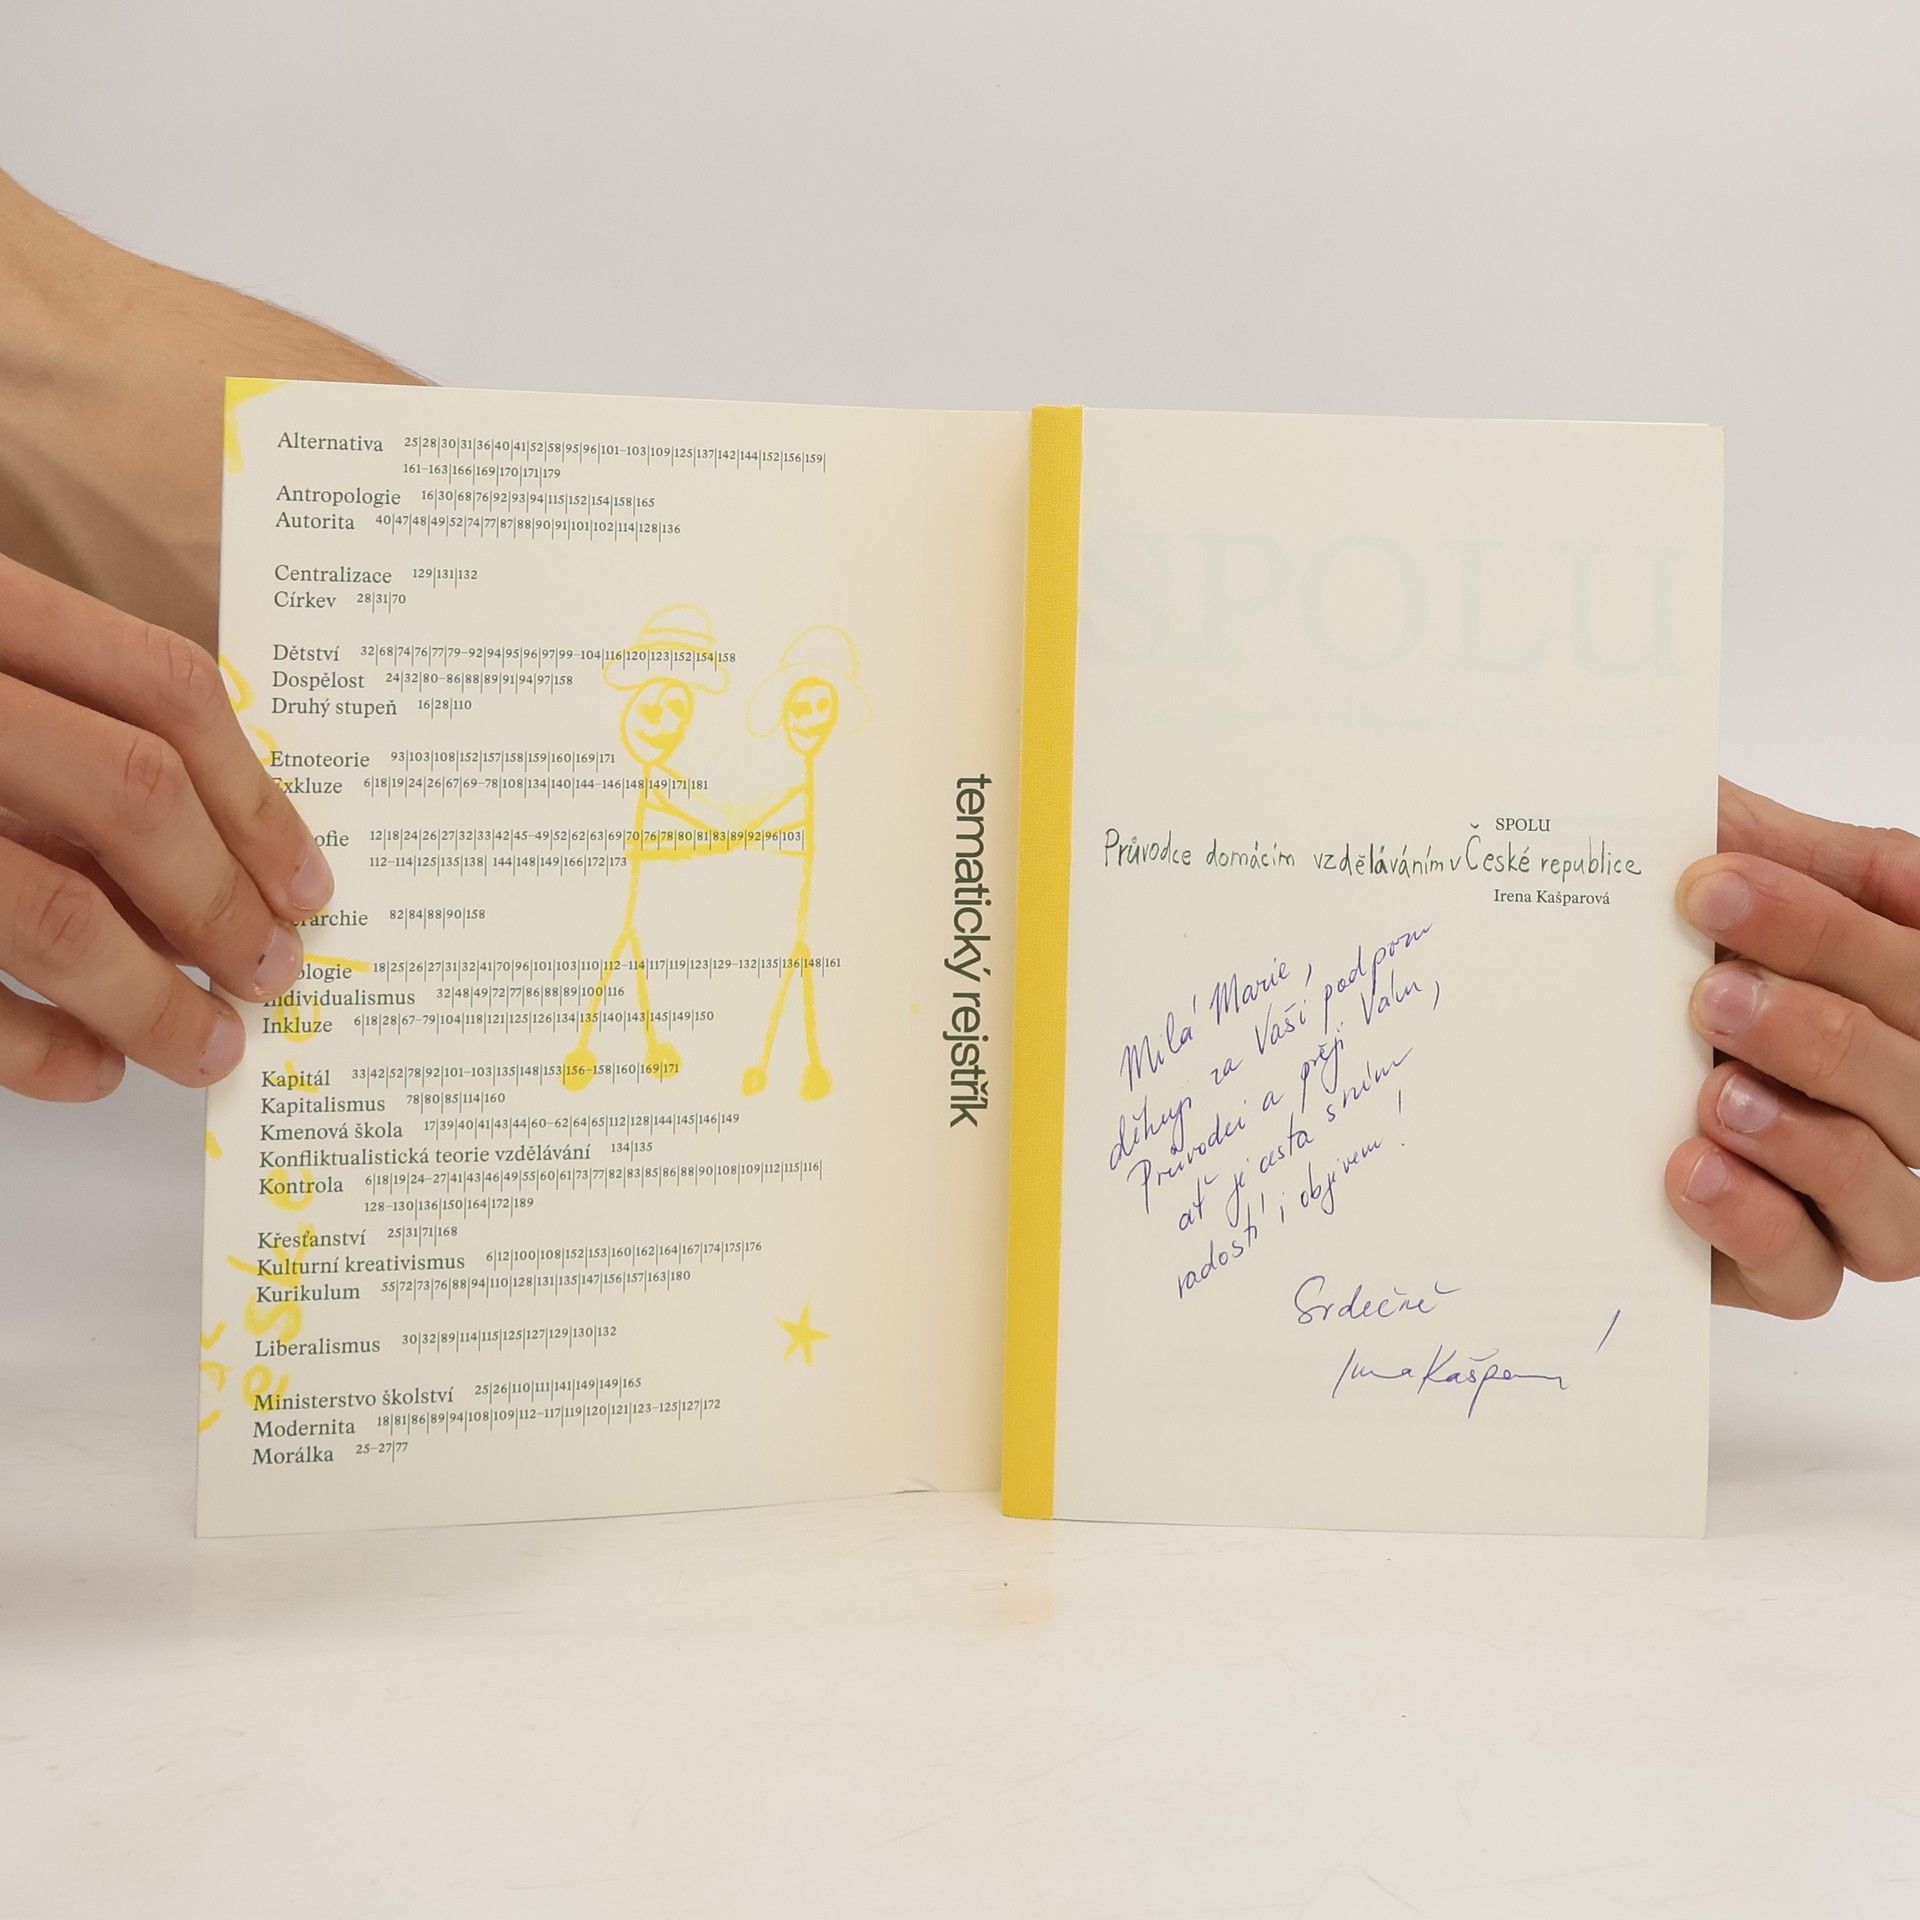 Alternativa 25|28|30|31|36|40|41|52|58|95|96|101–103|109|125|137|142|144|152|156|159|
161–163|166|169|170|171|179
Antropologie 16|30|68|76|92|93|94|115|152|154|158|165
Autorita 40|47|48|49|52|74|77|87|88|90|91|101|102|114|128|136
Centralizace 129|131|132
Církev 28|31|70
Dětství 32|68|74|76|77|79–92|94|95|96|97|99–104|116|120|123|152|154|158
Dospělost 24|32|80–86|88|89|91|94|97|158
Druhý stupeň 16|28|110
Etnoteorie 93|103|108|152|157|158|159|160|169|171
Exkluze 6|18|19|24|26|67|69–78|108|134|140|144–146|148|149|171|181
ofie 12|18|24|26|27|32|33|42|45–49|52|62|63|69|70|76|78|80|81|83|89|92|96|103|
112–114|125|135|138| 144|148|149|166|172|173
erarchie 82|84|88|90|158
ologie 18|25|26|27|31|32|41|70|96|101|103|110|112–114|117|119|123|129–132|135|136|148|161
Individualismus 32|48|49|72|77|86|88|89|100|116
Inkluze 6|18|28|67–79|104|118|121|125|126|134|135|140|143|145|149|150
Kapitál 33|42|52|78|92|101–103|135|148|153|156–158|160|169|171
Kapitalismus 78|80|85|114|160
Kmenová škola 17|39|40|41|43|44|60–62|64|65|112|128|144|145|146|149
Konfliktualistická teorie vzdělávání 134|135
Kontrola 6|18|19|24–27|41|43|46|49|55|60|61|73|77|82|83|85|86|88|90|108|109|112|115|116|
128–130|136|150|164|172|189
Křesťanství 25|31|71|168
Kulturní kreativismus 6|12|100|108|152|153|160|162|164|167|174|175|176
Kurikulum 55|72|73|76|88|94|110|128|131|135|147|156|157|163|180
Liberalismus 30|32|89|114|115|125|127|129|130|132
Ministerstvo školství 25|26|110|111|141|149|149|165
Modernita 18|81|86|89|94|108|109|112–117|119|120|121|123–125|127|172
Morálka 25–27|77
tematický rejstřík
SPOLU
SPOLU
Průvodce domácím vzděláváním v České republice
Irena Kašparová
Milá Marie,
děkuji za Vaši podporu
Průvodci a přeji Vám,
ať je cesta s ním
radostí i objevem!
Srdečně
Irena Kašparová